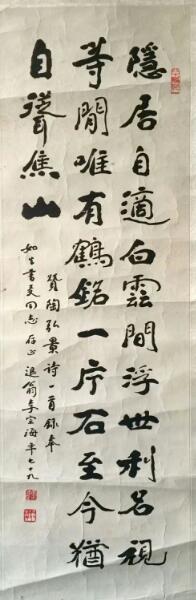 隱居自適白雲間浮世利名視
等閒唯有鶴銘一片石至今猶
自聳焦山
贊陶弘景詩一首錄奉
如生書友同志存正 退翁李宣海年七十九